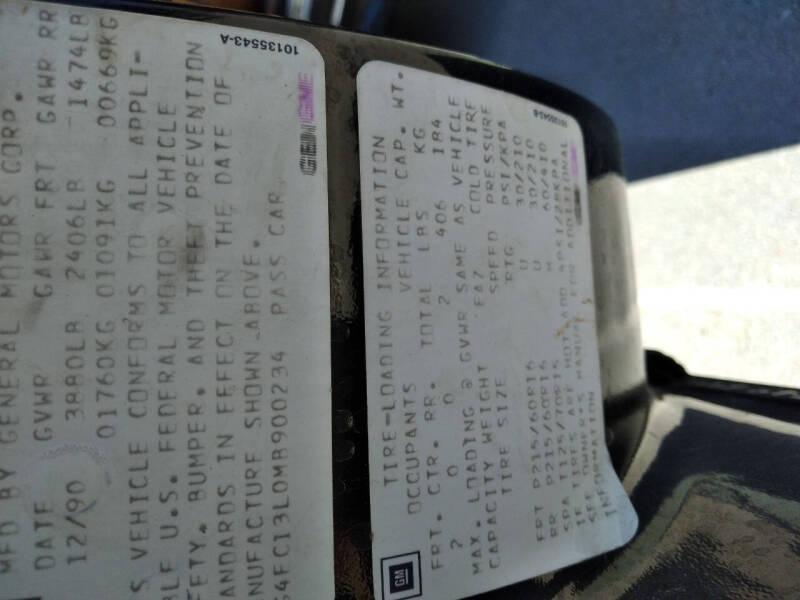 MFD BY GENERAL MOTORS CORP.
DATE GVWR GAWR FRT GAWR RR
12/90 3880LB 2406LB 1474LB
01760KG 01091KG 00669KG
S VEHICLE CONFORMS TO ALL APPLI-
BLE U.S. FEDERAL MOTOR VEHICLE
FETY, BUMPER, AND THEFT PREVENTION
ANDARDS IN EFFECT ON THE DATE OF
NUFACTURE SHOWN ABOVE.
G4FC13L0MB900234 PASS CAR
10135543-A
TIRE-LOADING INFORMATION
OCCUPANTS VEHICLE CAP. WT.
FRT. CTR. RR. TOTAL LBS KG
2 0 0 2 406 184
MAX. LOADING @ GVWR SAME AS VEHICLE
CAPACITY WEIGHT FA7 COLD TIRE
TIRE SIZE SPEED PRESSURE
RTG PSI/KPA
FRT P215/60R16 U 30/210
RR P215/60R16 U 30/210
SPA T125/70R15 M 60/410
IF TIRES ARE HOT, ADD 4PSI/28KPA
SEE OWNER'S MANUAL FOR ADDITIONAL
INFORMATION
GM
10135543-B